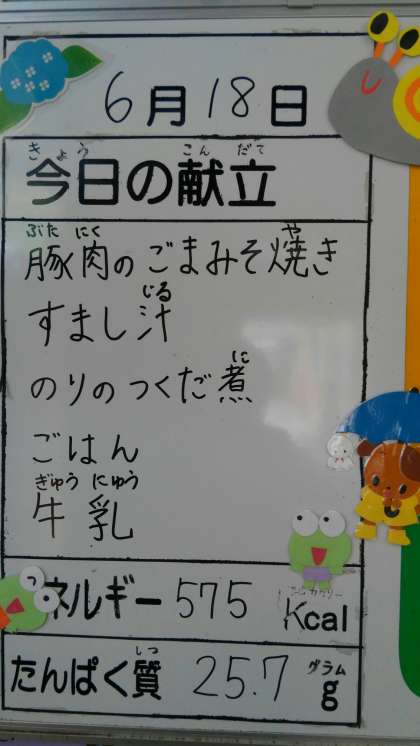 6月18日
きょう こんだて
今日の献立
ぶたにく や
豚肉のごまみそ焼き
じる
すまし汁
に
のりのつくだ煮
ごはん
ぎゅうにゅう
牛乳
ネルギー 575 Kcal
しつ グラム
たんぱく質 25.7 g